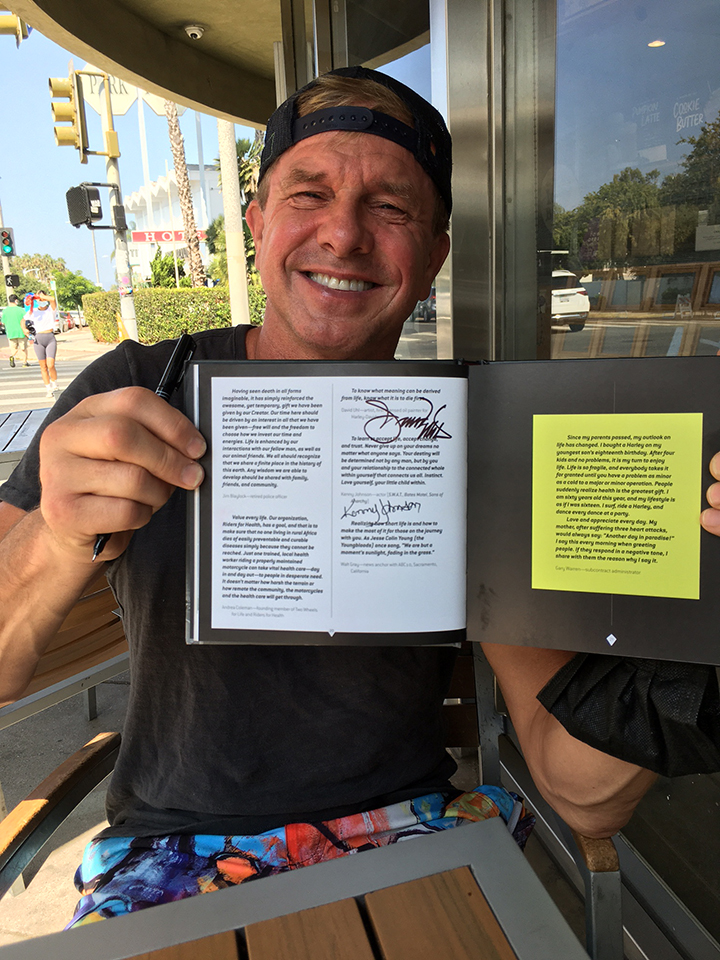 PARK
HOT
COOKIE
BUTTER
LATTE
Having seen death in all forms
imaginable, it has simply reinforced the
awesome, yet temporary, gift we have been
given by our Creator. Our time here should
be driven by an interest in all that we have
been given—free will and the freedom to
choose how we invest our time and
energies. Life is enhanced by our
interactions with our fellow man, as well as
our animal friends. We all should recognize
that we share a finite place in the history of
this earth. Any wisdom we are able to
develop should be shared with family,
friends, and community.
Jim Waglock—retired police officer
Value every life. Our organization,
Riders for Health, has a goal, and that is to
make sure that no one living in rural Africa
dies of easily preventable and curable
diseases simply because they cannot be
reached. Just one trained, local health
worker riding a properly maintained
motorcycle can take vital health care—day
in and day out—to people in desperate need.
It doesn't matter how harsh the terrain or
how remote the community, the motorcycles
and the health care will get through.
Andrea Coleman—founding member of Two Wheels
for Life and Riders for Health
To know what meaning can be derived
from life, know what it is to die first.
David Uhl—artist,
To learn
and trust. Never give up on your dreams no
matter what anyone says. Your destiny will
be determined not by any man, but by you
and your relationship to the connected whole
within yourself that connects us all. Instinct.
Love yourself, your little child within.
Kenny Johnson—actor (S.W.A.T., Bates Motel, Sons of
Anarchy)
Kenny Johnson
Realizing how short life is and how
to make the most of it for those on the journey
with you. As Jesse Colin Young (the
Youngbloods) once sang, "We are but a
moment's sunlight, fading in the grass."
Walt Gray—news anchor with ABC 10, Sacramento,
California
Since my parents passed, my outlook on
life has changed. I bought a Harley on my
youngest son's eighteenth birthday. After four
kids and no problems, it is my turn to enjoy
life. Life is so fragile, and everybody takes it
for granted until you have a problem as minor
as a cold to a major or minor operation. People
suddenly realize health is the greatest gift. I
am sixty years old this year, and my lifestyle is
as if I was sixteen. I surf, ride a Harley, and
dance every dance at a party.
Love and appreciate every day. My
mother, after suffering three heart attacks,
would always say: "Another day in paradise!"
I say this every morning when greeting
people. If they respond in a negative tone, I
share with them the reason why I say it.
Gary Warren—subcontract administrator